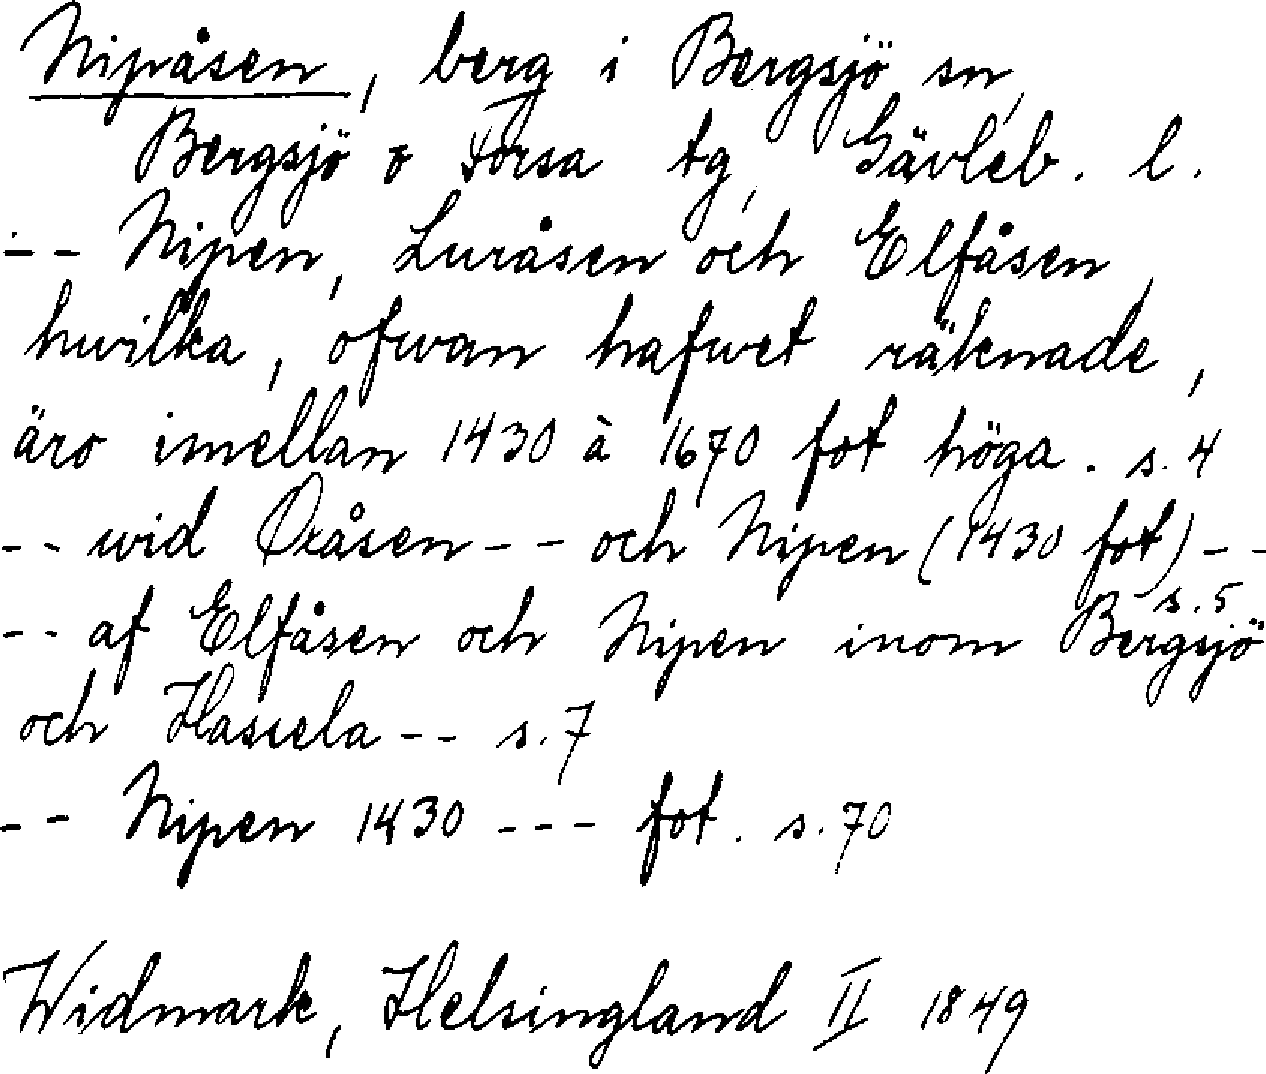 Nipåsen, berg i Bergsjö sn,
Bergsjö o Forsa tg, Gävleb. l.
-- Nipen, Luråsen och Elfåsen,
hwilka, ofwan hafwet räknade,
äro imellan 1430 à 1670 fot höga. s. 4
-- wid Oråsen -- och Nipen (1430 fot) --
s. 5
-- af Elfåsen och Nipen inom Bergsjö
och Hassela -- s. 7
-- Nipen 1430 --- fot. s. 70
Widmark, Helsingland II 1849